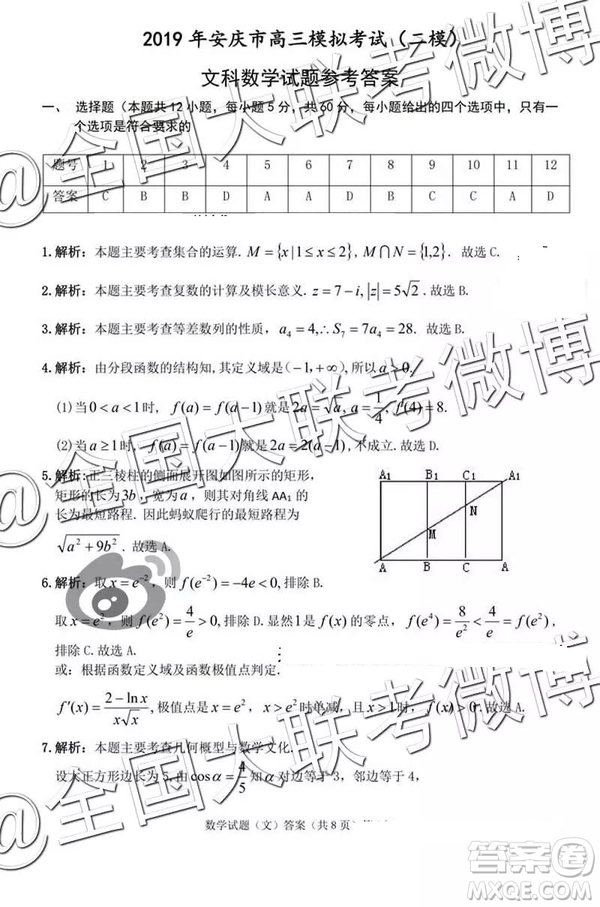 2019 年安庆市高三模拟考试（二模）
文科数学试题参考答案
一、 选择题（本题共 12 小题，每小题 5 分，共 60 分，每小题给出的四个选项中，只有一
个选项是符合要求的
题号 1 2 3 4 5 6 7 8 9 10 11 12
答案 C B B D A A D B C C A D
1.解析：本题主要考查集合的运算. M={x|1≤x≤2}, M∩N={1,2}. 故选 C.
2.解析：本题主要考查复数的计算及模长意义. z=7−i, |z|=5√2. 故选 B.
3.解析：本题主要考查等差数列的性质，a₄=4,∴S₇=7a₄=28. 故选 B.
4.解析：由分段函数的结构知，其定义域是(−1,+∞),所以a>0.
(1)当 0<a<1 时, f(a)=f(a−1)就是2a=√a, a=1/4, f(4)=8.
(2)当 a≥1 时, f(a)=f(a−1)就是2a=2(a−1),不成立. 故选 D.
5.解析：正三棱柱的侧面展开图如图所示的矩形，
矩形的长为3b，宽为a，则其对角线 AA₁ 的
长为最短路程. 因此蚂蚁爬行的最短路程为
√(a²+9b²). 故选 A.
A₁ B₁ C₁ A₁
N
M
A B C A
6.解析：取 x=e⁻²，则 f(e⁻²)=−4e<0, 排除 B.
取 x=e²，则 f(e²)=4/e>0, 排除 D.显然1是 f(x) 的零点，f(e⁴)=8/e²<4/e=f(e²)，
排除 C.故选 A.
或：根据函数定义域及函数极值点判定.
f′(x)=(2−ln x)/(x√x),极值点是 x=e²，x>e²时单减，且 x>1时，故选 A.
7.解析：本题主要考查几何概型与数学文化.
设大正方形边长为 5,由cosα=4/5 知α对边等于 3，邻边等于 4，
数学试题（文）答案（共 8 页）
@全国大联考微博
@全国大联考微博
@全国大联考微博
答案圈
MXQE.COM